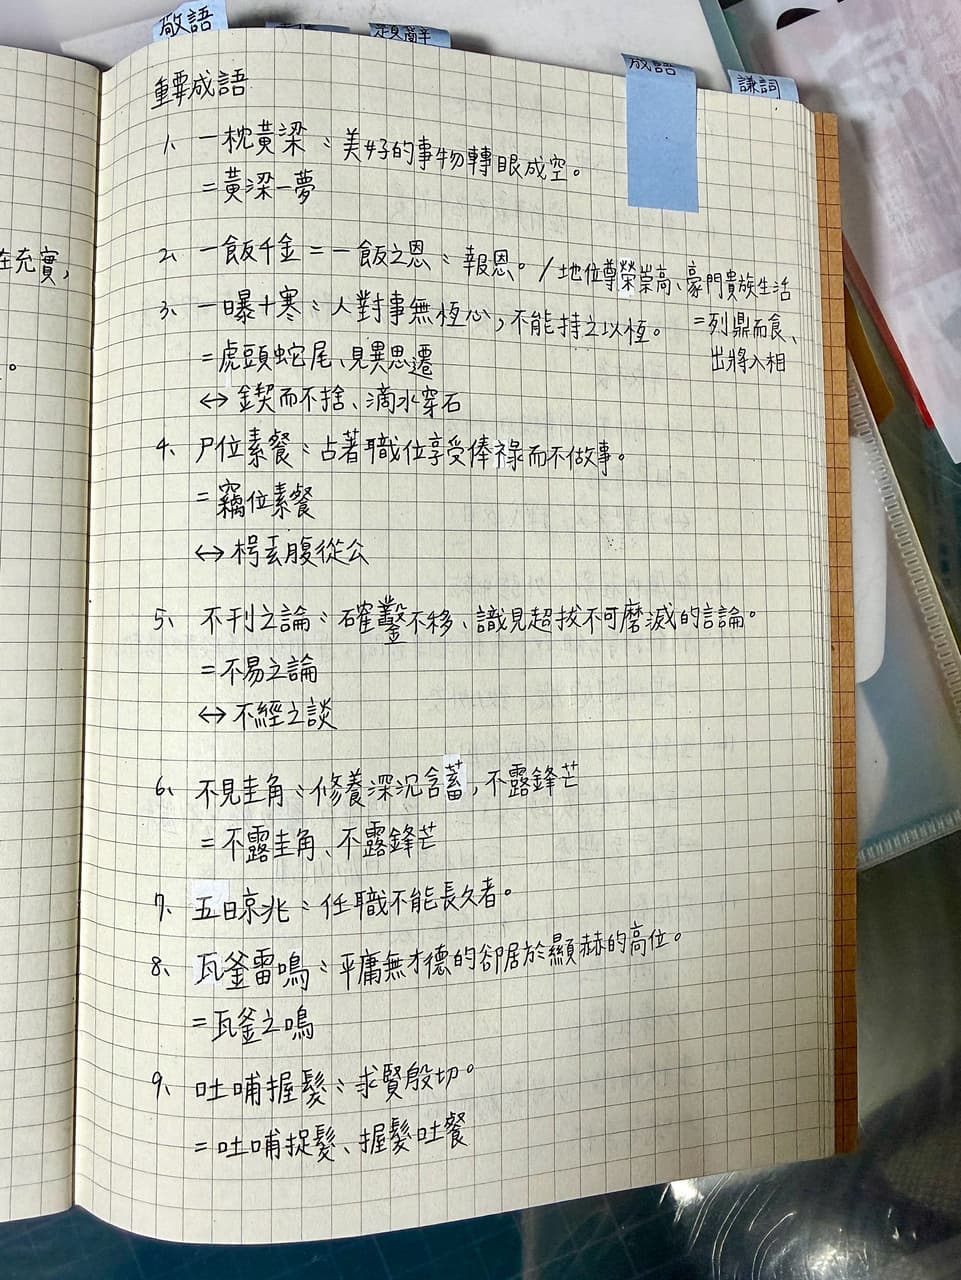 敬語
敬語
謙詞
在充實,
。
重要成語
1、一枕黃梁:美好的事物轉眼成空。
=黃梁一夢
2、一飯千金=一飯之恩:報恩。/地位尊榮崇高、豪門貴族生活
=列鼎而食、
出將入相
3、一曝十寒:人對事無恆心,不能持之以恆。
=虎頭蛇尾、見異思遷
↔鍥而不捨、滴水穿石
4、尸位素餐:占著職位享受俸祿而不做事。
=竊位素餐
↔枵腹從公
5、不刊之論:確鑿不移、識見超拔不可磨滅的言論。
=不易之論
↔不經之談
6、不見圭角:修養深沉含蓄,不露鋒芒
=不露圭角、不露鋒芒
7、五日京兆:任職不能長久者。
8、瓦釜雷鳴:平庸無才德的卻居於顯赫的高位。
=瓦釜之鳴
9、吐哺握髮:求賢殷切。
=吐哺捉髮、握髮吐餐